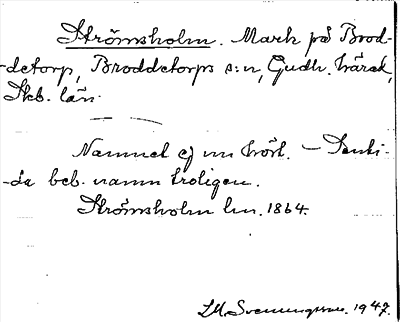 Strömsholm. Mark på Brod-
-detorp, Broddetorps s:n, Gudh. härad,
Skb. län.
Namnet ej nu hört. – Samti-
-da beb. namn troligen.
Strömsholm hm. 1864.
1947.